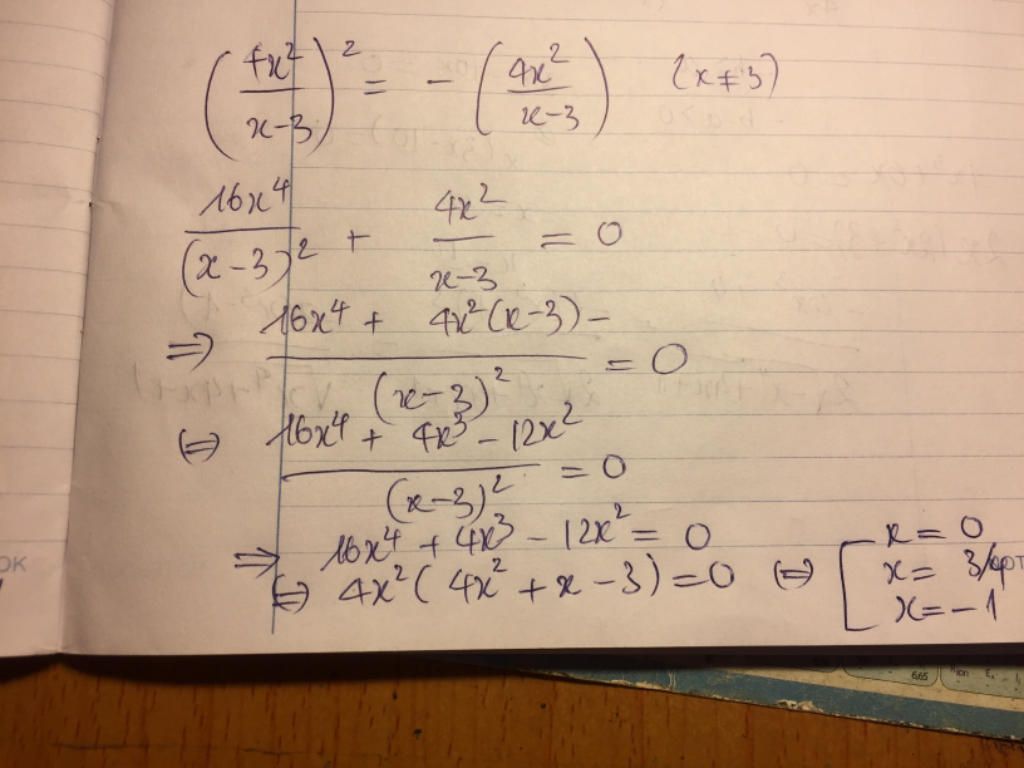 (4x²/(x-3))² = -(4x²/(x-3)) (x≠3)
16x⁴/(x-3)² + 4x²/(x-3) = 0
⇒ (16x⁴ + 4x²(x-3) -)/(x-3)² = 0
⇔ (16x⁴ + 4x³ - 12x²)/(x-3)² = 0
⇒ 16x⁴ + 4x³ - 12x² = 0
⇔ 4x²(4x² + x - 3) = 0 ⇔ [ x = 0
x = 3/4
x = -1
6,65